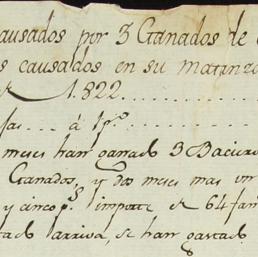 ausados por 3 Ganados de
s causados en su matanza
1822
fas á 1 p.º
meses han ganado 3 Bacieros
Ganados, y dos meses mas un
y cinco p.s importe de 64 fan
arriva, se han gastado